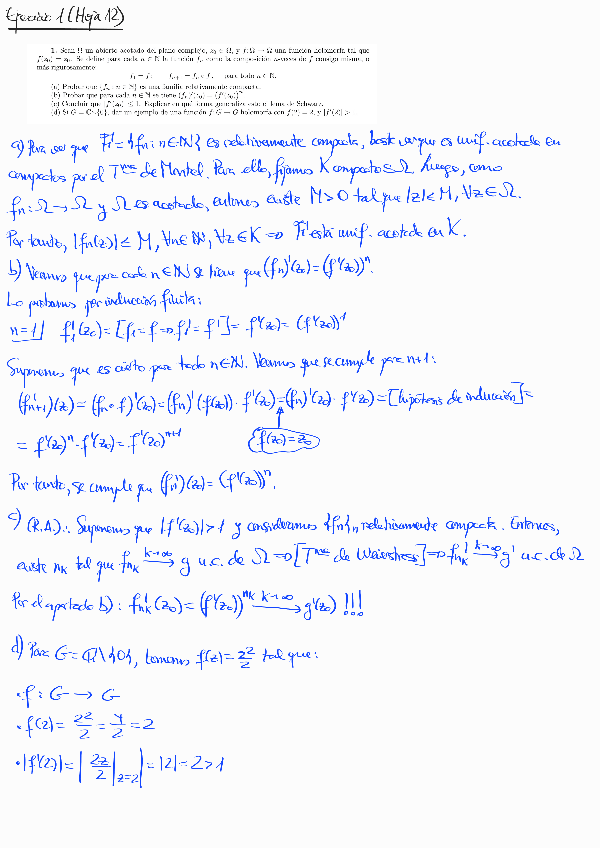 Ejercicio 1 (Hoja 12)
1. Sean Ω un abierto acotado del plano complejo, z₀ ∈ Ω, y f: Ω → Ω una función holomorfa tal que
f(z₀) = z₀. Se define para cada n ∈ N la función fₙ como la composición n-veces de f consigo misma, o
más rigurosamente
f₁ = f, fₙ₊₁ = fₙ ∘ f, para todo n ∈ N.
(a) Probar que {fₙ : n ∈ N} es una familia relativamente compacta.
(b) Probar que para cada n ∈ N se tiene (fₙ)'(z₀) = (f'(z₀))ⁿ
(c) Concluir que |f'(z₀)| ≤ 1. Explicar en qué forma generaliza esto el lema de Schwarz.
(d) Si G = C\{0}, dar un ejemplo de una función f: G → G holomorfa con f(2) = 2, y |f'(2)| >
a) Para ver que F = {fn : n ∈ N} es relativamente compacta, basta ver que es unif. acotada en
compactos por el Tᵐᵃ de Montel. Para ello, fijamos K compacto ⊆ Ω. Luego, como
fn : Ω → Ω y Ω es acotado, entonces existe M > 0 tal que |z| ≤ M, ∀z ∈ Ω.
Por tanto, |fn(z)| ≤ M, ∀n ∈ N, ∀z ∈ K ⇒ F está unif. acotada en K.
b) Veamos que para cada n ∈ N se tiene que (fn)'(z₀) = (f'(z₀))ⁿ.
Lo probamos por inducción finita:
n=1| f₁'(z₀) = [f₁ = f ⇒ f₁' = f'] = f'(z₀) = (f'(z₀))¹
Suponemos que es cierto para todo n ∈ N. Veamos que se cumple para n+1:
(fn+1')(z₀) = (fn ∘ f)'(z₀) = (fn)'(f(z₀)) · f'(z₀) = (fn)'(z₀) · f'(z₀) = [hipótesis de inducción] =
= f'(z₀)ⁿ · f'(z₀) = f'(z₀)ⁿ⁺¹ f(z₀) = z₀
Por tanto, se cumple que (fn')(z₀) = (f'(z₀))ⁿ.
c) (R.A.): Suponemos que |f'(z₀)| > 1 y consideramos {fn}n relativamente compacta. Entonces,
existe nk tal que fnk —k→∞→ g u.c. de Ω ⇒ [Tᵐᵃ de Weierstrass] ⇒ fnk' —k→∞→ g' u.c. de Ω
Por el apartado b): fnk'(z₀) = (f'(z₀))ⁿᵏ —k→∞→ g'(z₀) !!!
d) Para G = C\{0}, tomamos f(z) = z²/2 tal que:
· f : G → G
· f(2) = 2²/2 = 4/2 = 2
· |f'(2)| = |2z/2|z=2| = |2| = 2 > 1